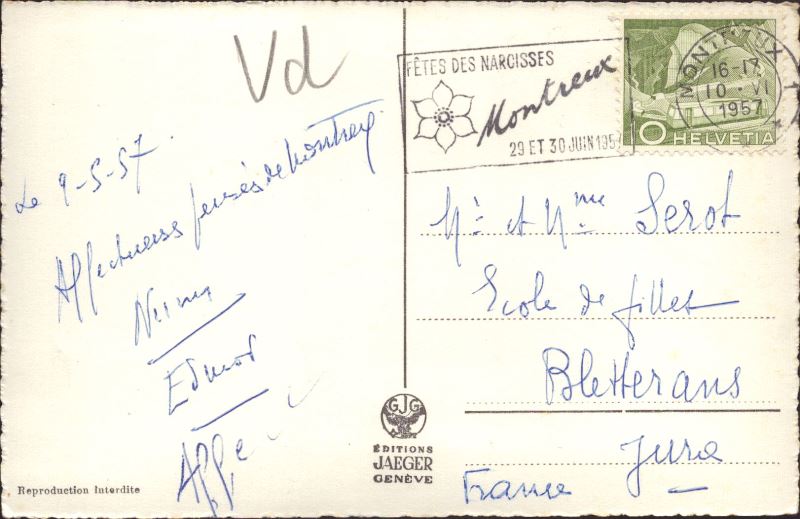 Vd
Le 9-5-57
Affectueuses pensées de Montreux
Edmond
Reproduction Interdite
GJG
ÉDITIONS
JAEGER
GENÈVE
FÊTES DES NARCISSES
Montreux
29 ET 30 JUIN 1957
MONTREUX
16-17
10·VI
1957
10 HELVETIA
Mr et Mme Serot
Ecole de filles
Bletterans
Jura
France